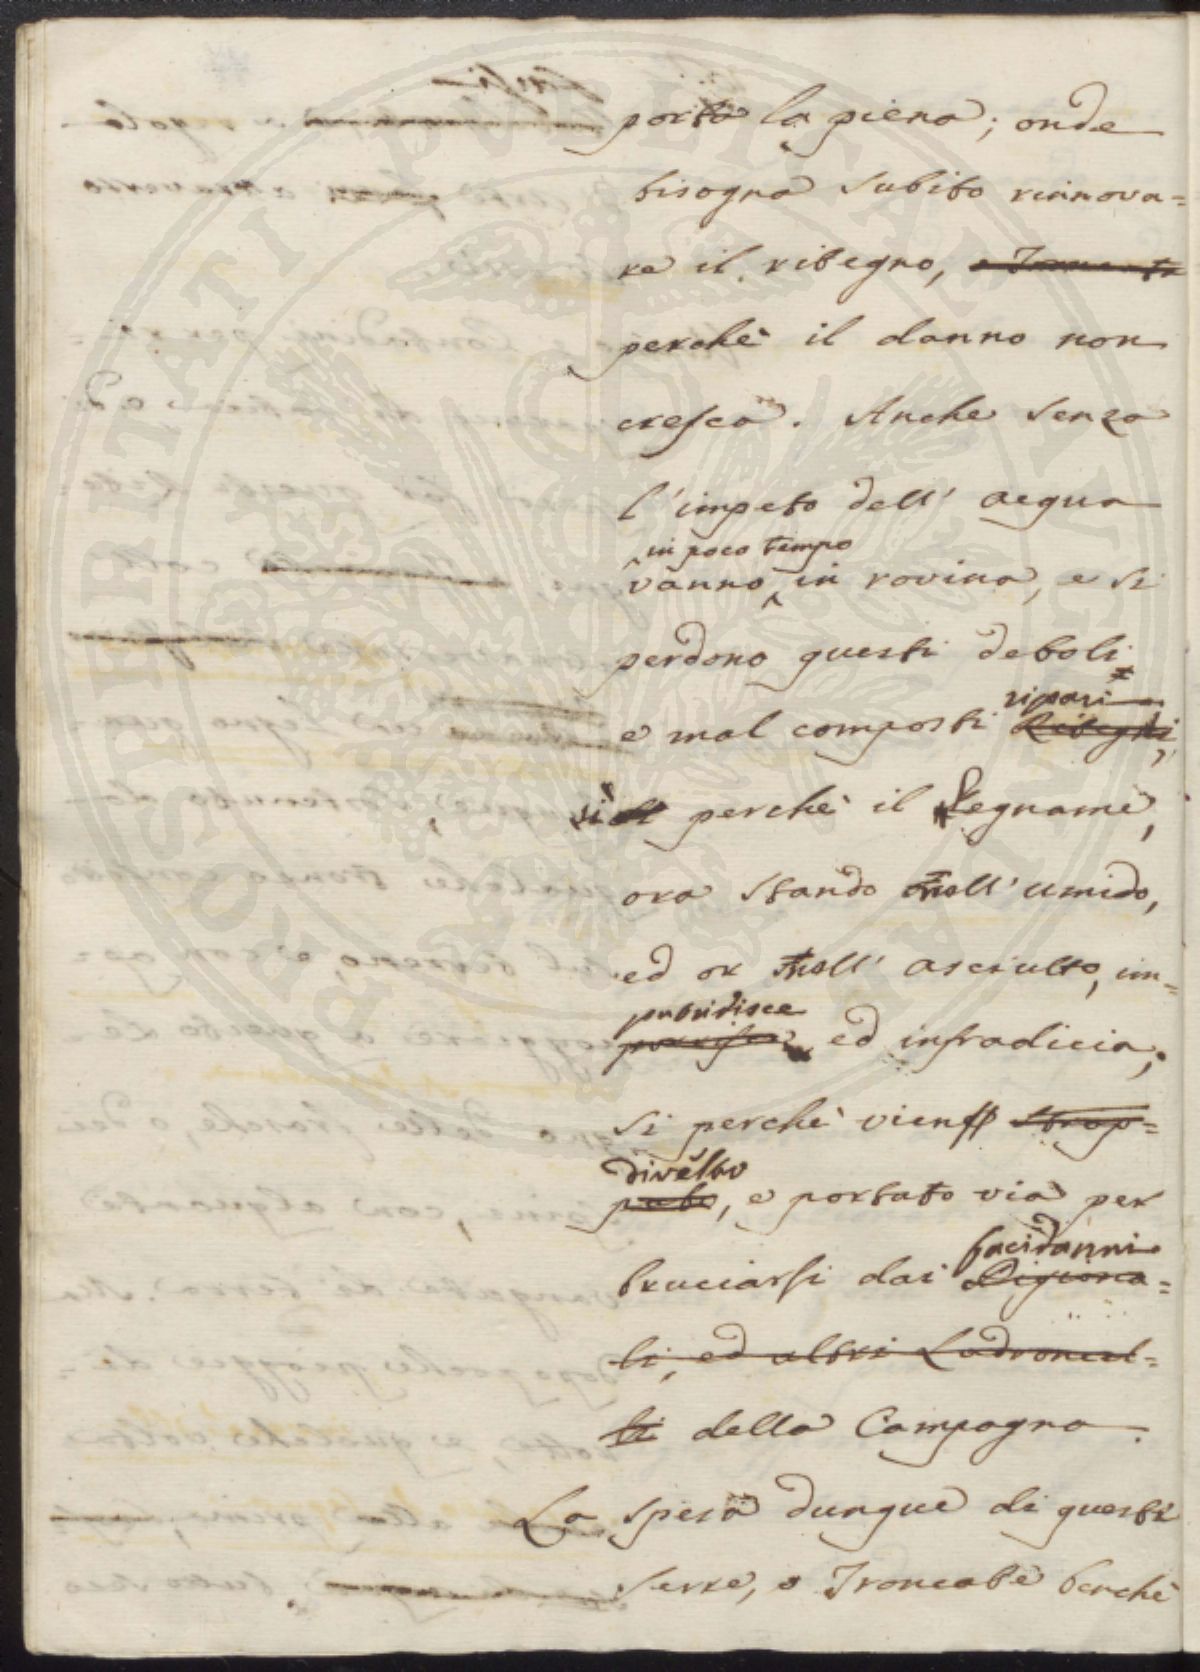 porta la piena; onde
bisogna subito rinnova=
re il ritegno,
perchè il danno non
cresca. Anche senza
l'impeto dell' acqua
in poco tempo
vanno in rovina, e si
perdono questi deboli
ripari
e mal composti Ritegni,
si perchè il Legname,
ora stando nell' umido,
ed or nell' asciutto, im=
putridisce
ed infradicia;
si perchè vien strap=
divelto
pato, e portato via per
facidanni
bruciarsi dai Pigiona=
li, ed altri Ladroncel=
li della Campagna.
La spesa dunque di queste
serre, o Troncate benchè